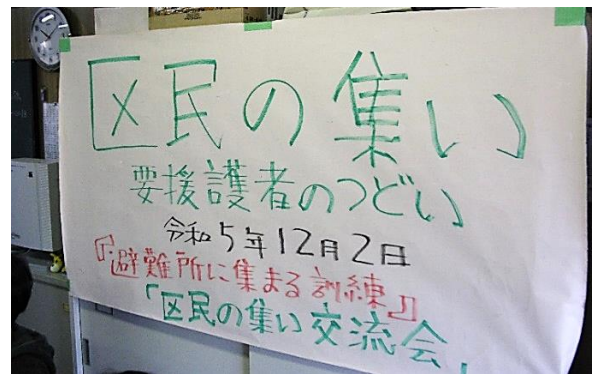 区民の集い
要援護者のつどい
令和5年12月2日
『避難所に集まる訓練』
「区民の集い交流会」